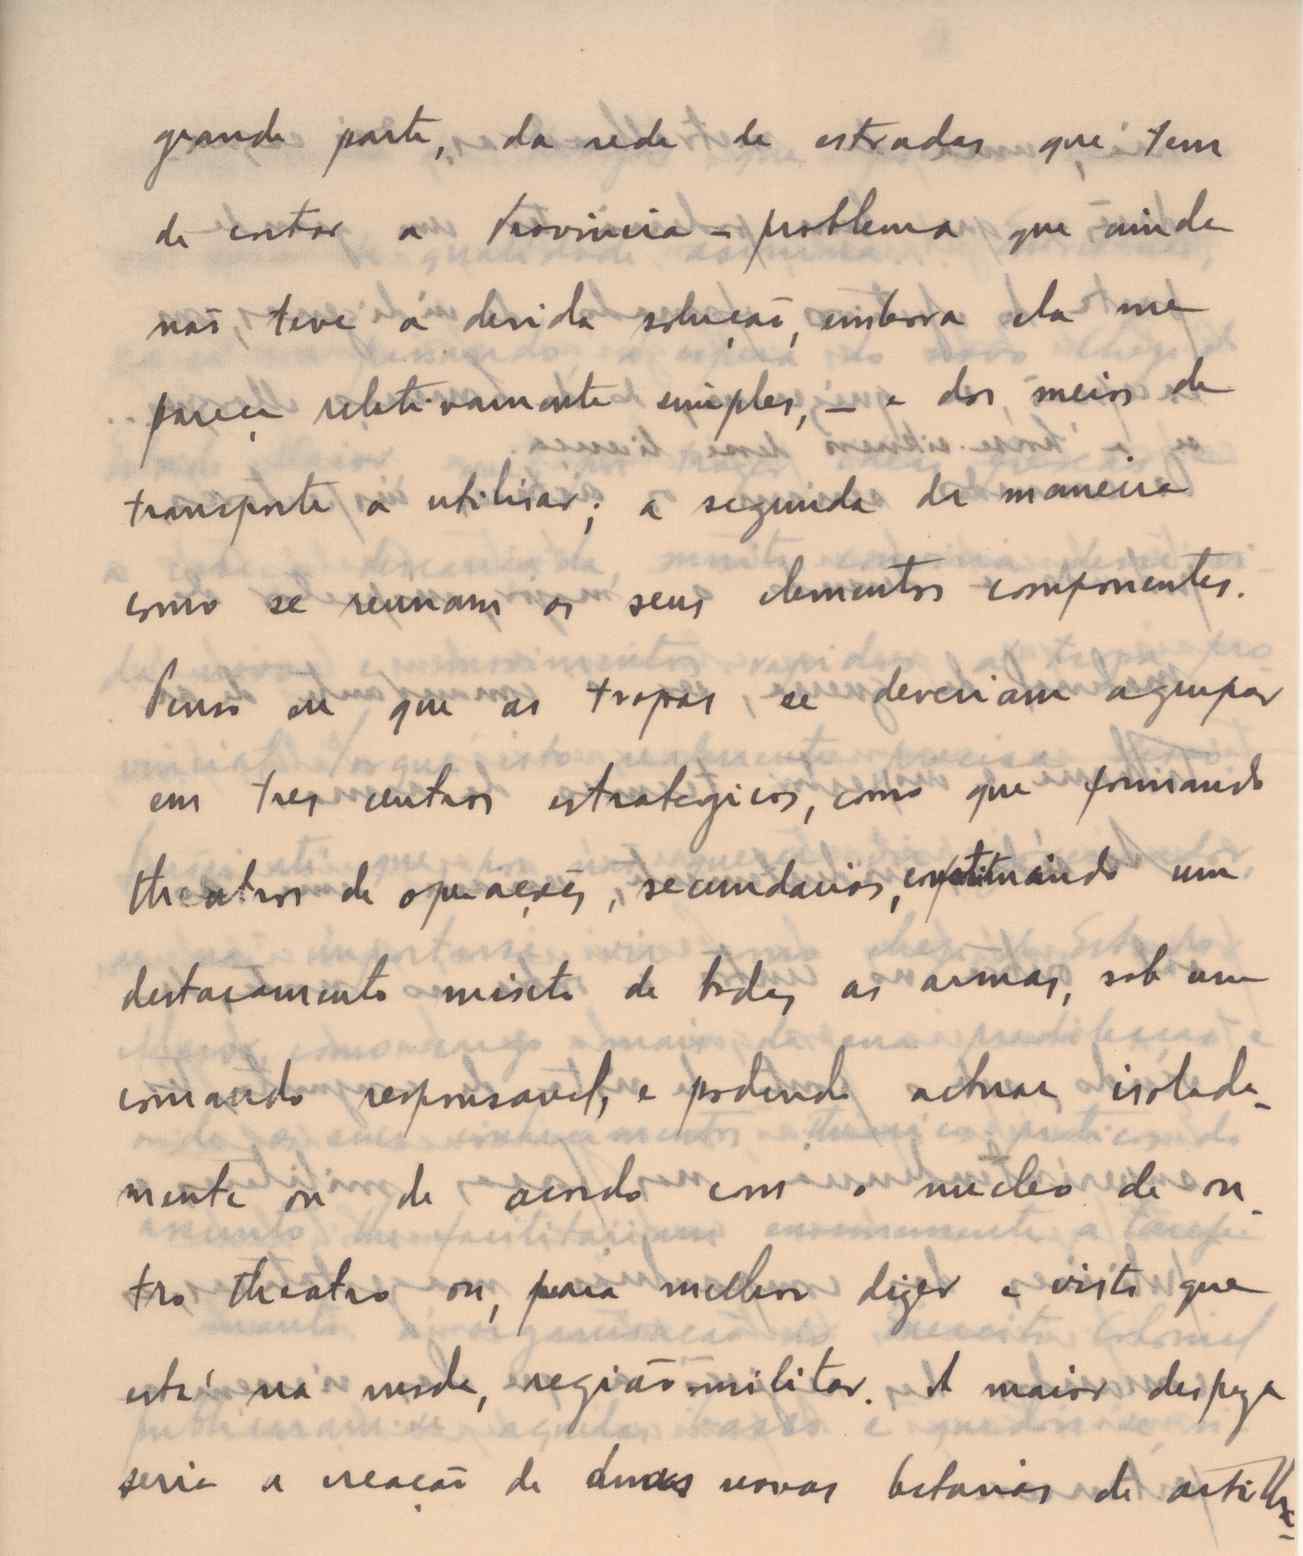 grande parte, da rede de estradas que tem
de cortar a Provincia – problema que ainda
não teve a devida solução, embora ela me
pareça relativamente simples, – e dos meios de
transporte a utilisar; a segunda da maneira
como se reunam os seus elementos componentes.
Penso eu que as tropas se deveriam agrupar
em tres centros estrategicos, como que formando
theatros de operações, secundarios, constituindo um
destacamento mixto de todas as armas, sob um
comando responsavel, e podendo actuar isolada-
mente ou de acordo com o nucleo de ou-
tro theatro ou, para melhor dizer e visto que
está na moda, região militar. A maior despeza
seria a creação de duas novas batarias de artilhe-